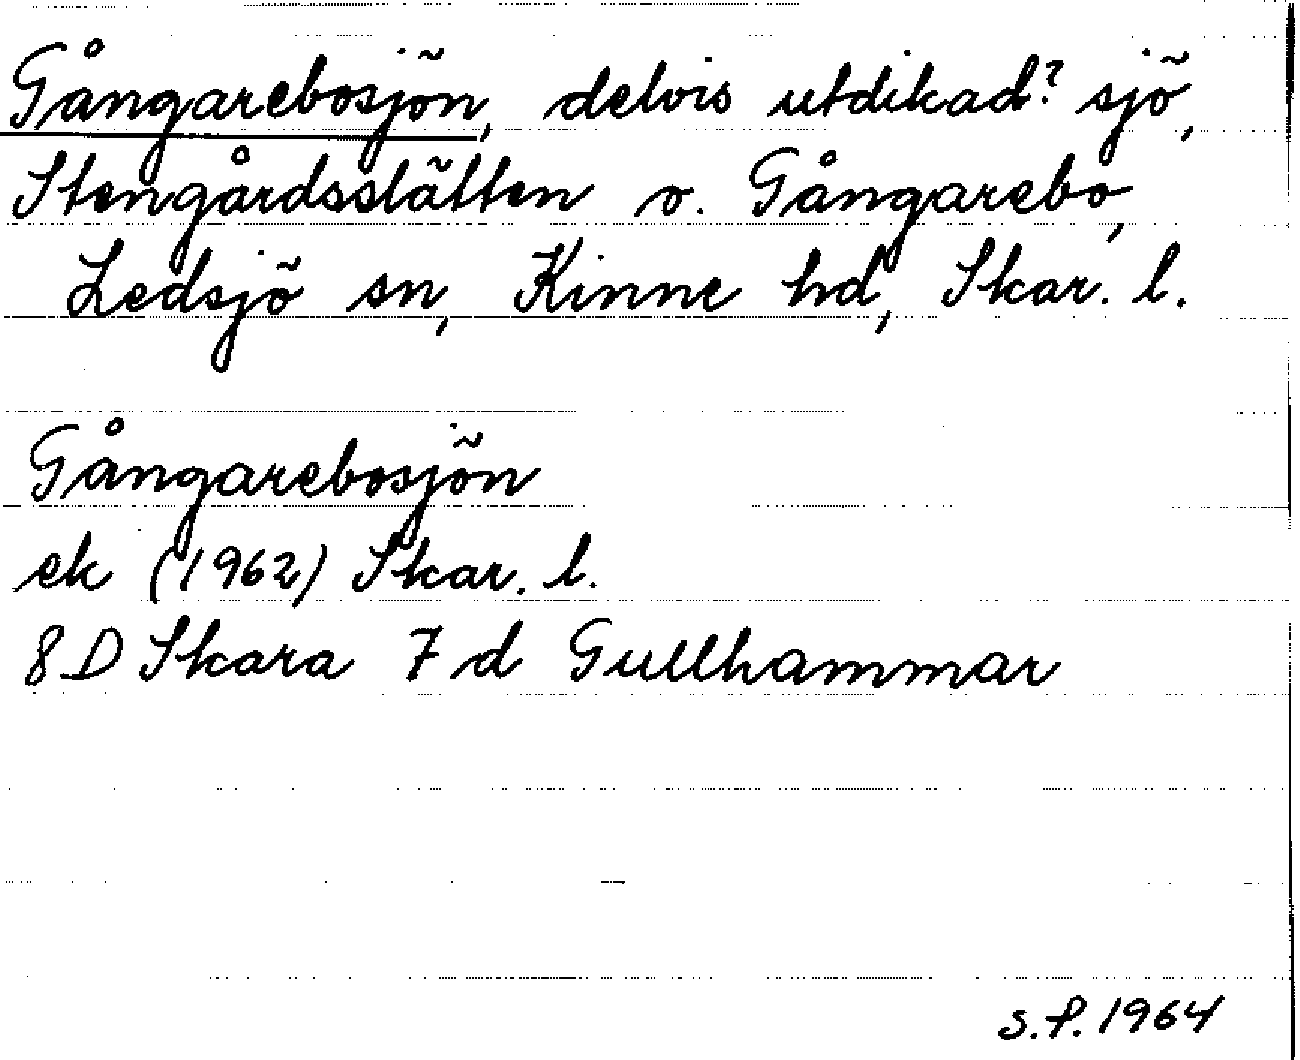 Gångarebosjön, delvis utdikad? sjö,
Stengårdsslätten o. Gångarebo,
Ledsjö sn, Kinne hd, Skar. l.
Gångarebosjön
ek (1962) Skar. l.
8D Skara 7d Gullhammar
S.P. 1964